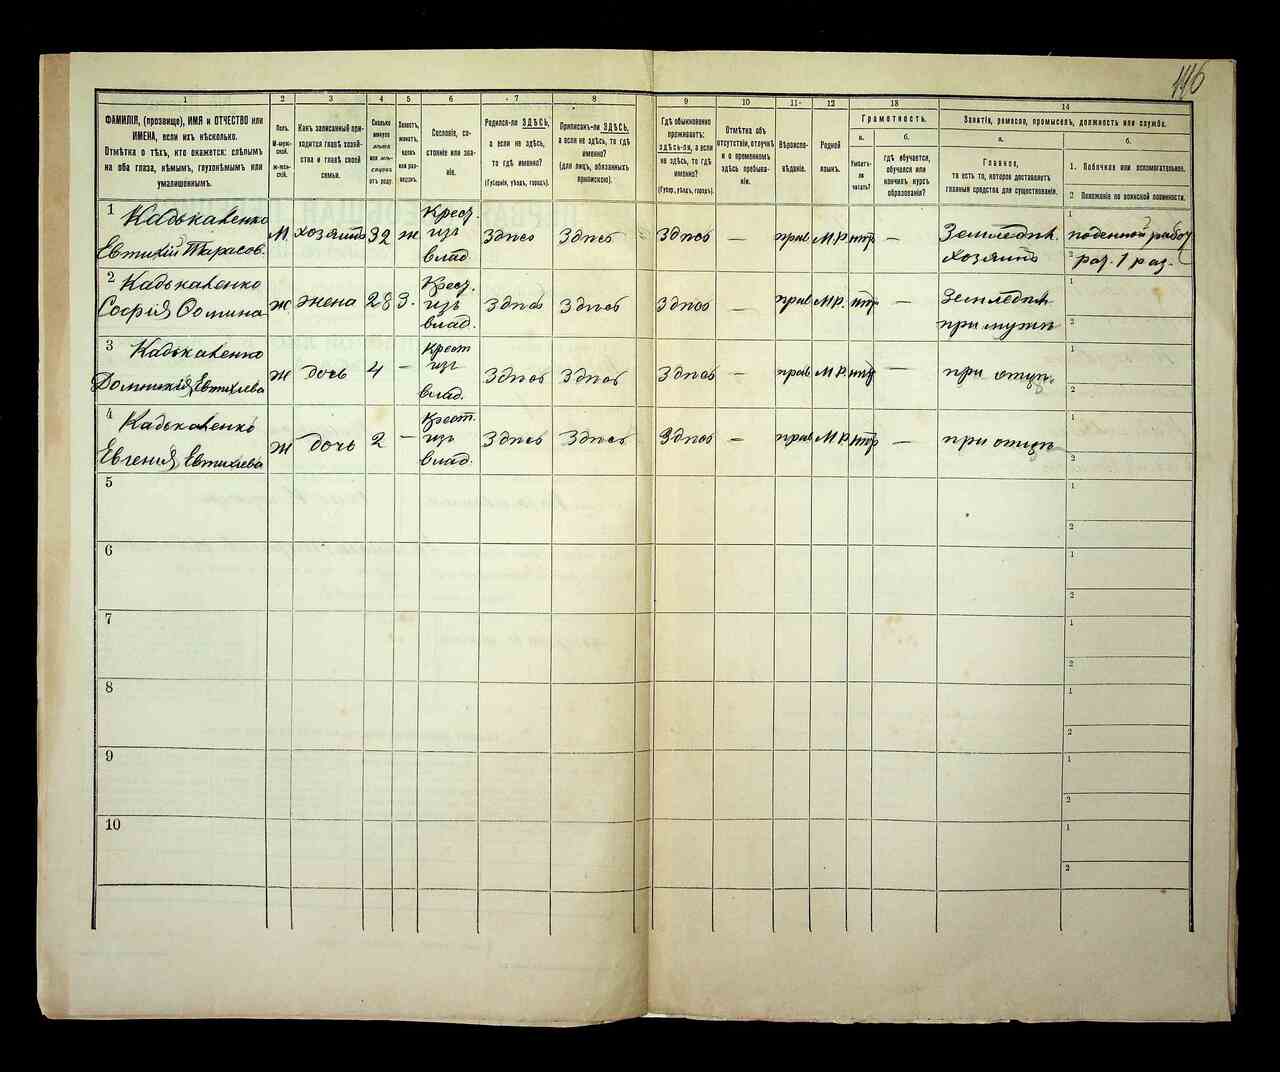 1
2
3
4
5
6
7
8
9
10
11
12
13
14
ФАМИЛІЯ, (прозвище), ИМЯ и ОТЧЕСТВО или
ИМЕНА, если ихъ нѣсколько.
Отмѣтка о тѣхъ, кто окажется: слѣпымъ
на оба глаза, нѣмымъ, глухонѣмымъ или
умалишеннымъ.
Полъ.
М-муж-
ской.
Ж-жен-
скій.
Какъ записанный при-
ходится главѣ хозяй-
ства и главѣ своей
семьи.
Сколько
минуло
лѣтъ
или мѣ-
сяцевъ
отъ роду.
Сословіе, со-
стояніе или зва-
ніе.
Родился-ли ЗДѢСЬ,
а если не здѣсь,
то гдѣ именно?
(Губернія, уѣздъ, городъ).
Приписанъ-ли ЗДѢСЬ,
а если не здѣсь, то гдѣ
именно?
(для лицъ, обязанныхъ
припискою).
Гдѣ обыкновенно
проживаетъ:
здѣсь-ли, а если
не здѣсь, то гдѣ
именно?
(Губерн., уѣздъ, городъ).
Отмѣтка объ
отсутствіи, отлучкѣ
и о временномъ
здѣсь пребыва-
ніи.
Вѣроиспо-
вѣданіе.
Родной
языкъ.
Грамотность.
а.
Умѣетъ-
ли
читать?
б.
гдѣ обучается,
обучался или
кончилъ курсъ
образованія?
Занятіе, ремесло, промыселъ, должность или служба.
а.
Главное,
то есть то, которое доставляетъ
главныя средства для существованія.
б.
1. Побочное или вспомогательное.
2. Положеніе по воинской повинности.
1 Кадькаленко
Евтихій Тарасов.
М хозяинъ 32 ж
Крест.
изъ
влад.
Здѣсь Здѣсь Здѣсь — прав М.Р. нѣтъ —
Земледѣл.
хозяинъ
1 поденный
2
2 Кадькаленко
Софія Фомина
ж жена 28 З.
Крест.
изъ
влад.
Здѣсь Здѣсь Здѣсь — прав М.Р. нѣтъ —
Земледѣл
при мужѣ
1
2
3 Кадькаленко
Домникія Евтихіева
ж дочь 4 —
Крест
изъ
влад.
Здѣсь Здѣсь Здѣсь — прав М.Р. нѣтъ —
при отцѣ.
1
2
4 Кадькаленко
Евгенія Евтихіева
ж дочь 2 —
Крест.
изъ
влад.
Здѣсь Здѣсь Здѣсь — прав М.Р. нѣтъ —
при отцѣ
1
2
5
1
2
6
1
2
7
1
2
8
1
2
9
1
2
10
1
2